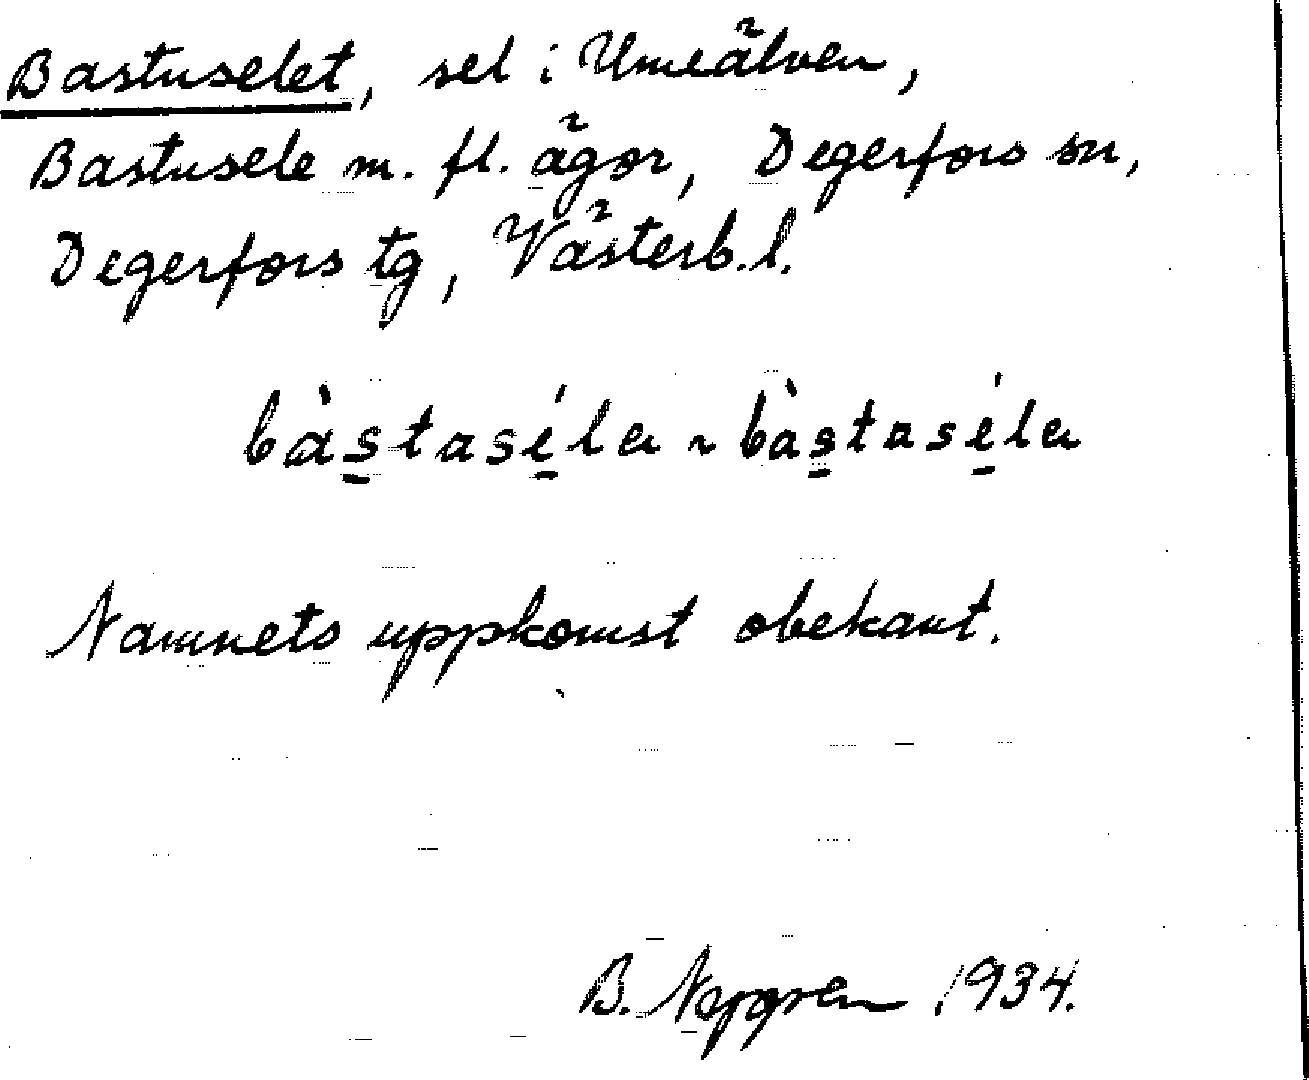 Bastuselet, sel i Umeälven,
Bastusele m. fl. ägor, Degerfors sn,
Degerfors tg, Västerb. l.
bàstasélα ~ bàstasélα
Namnets uppkomst obekant.
B. Nygren 1934.